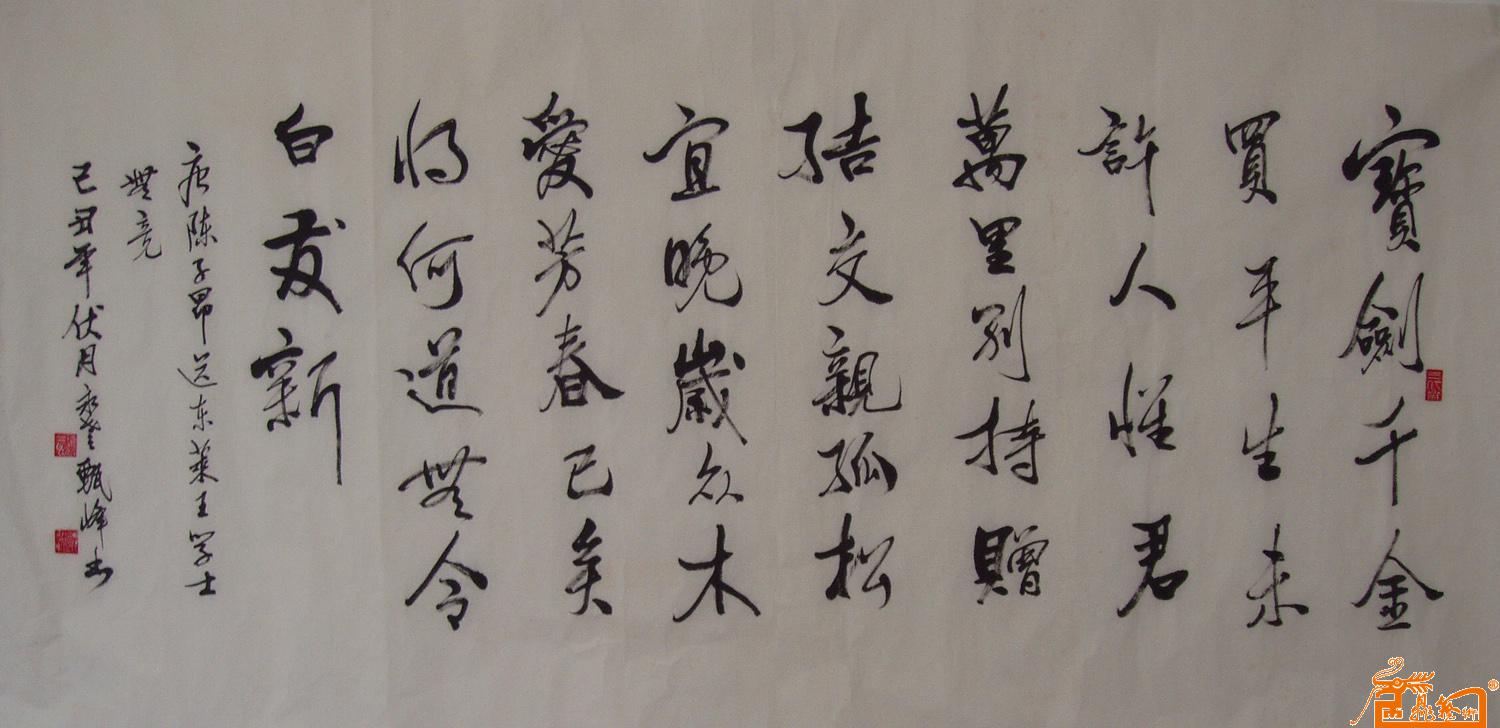 寶劍千金
買平生未
許人懷君
萬里别持贈
結交親孤松
宜晚歲众木
愛芳春已矣
将何道無令
白发新
唐陈子昂送东萊王学士
無竞
己丑年伏月甄峰书